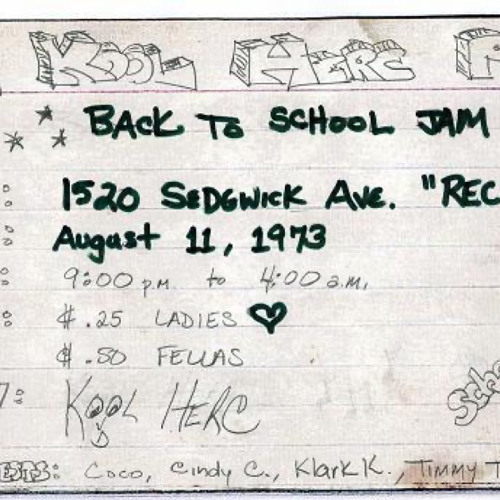 KOOL HERC
BACK TO SCHOOL JAM
: 1520 SEDGWICK AVE. "REC
: August 11, 1973
: 9:00 p.m. to 4:00 a.m.
: $ .25 LADIES ♥
$ .50 FELLAS
: KOOL HERC
: Coco, Cindy C., Klark K., TIMMY T